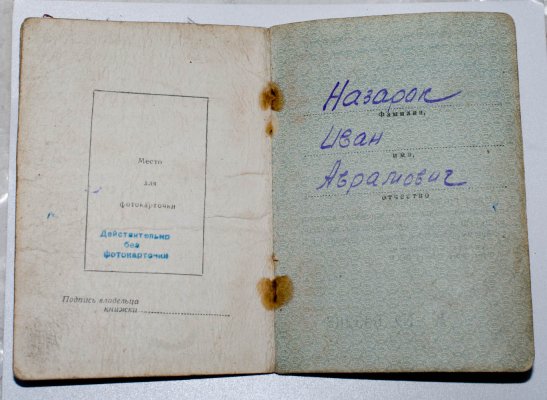 Место
для
фотокарточки
Действительно
без
фотокарточки
Подпись владельца
книжки
Назарок
Фамилия,
Иван
имя,
Аврамович
отчество